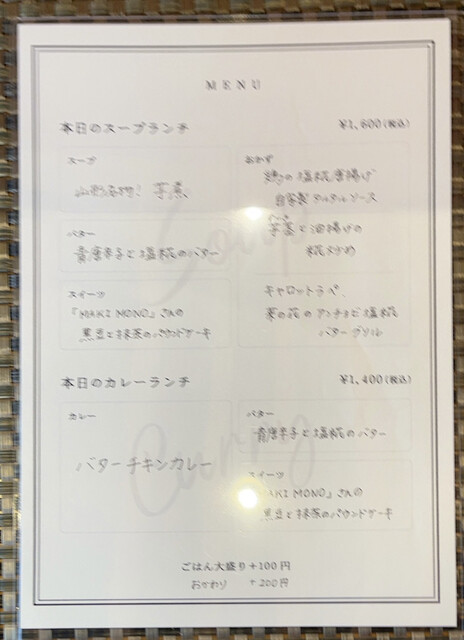 MENU
本日のスープランチ ¥1,600(税込)
スープ
山形名物！ 芋煮
バター
青唐辛子と塩糀のバター
スイーツ
『MAKI MONO』さんの
黒豆と抹茶のパウンドケーキ
おかず
鶏の塩糀唐揚げ
自家製タルタルソース
芋茎と油揚げの
糀炒め
キャロットラペ、
菜の花のアンチョビ塩糀
バターグリル
本日のカレーランチ ¥1,400(税込)
カレー
バターチキンカレー
バター
青唐辛子と塩糀のバター
スイーツ
『MAKI MONO』さんの
黒豆と抹茶のパウンドケーキ
Soup
Curry
ごはん大盛り+100円
おかわり +200円